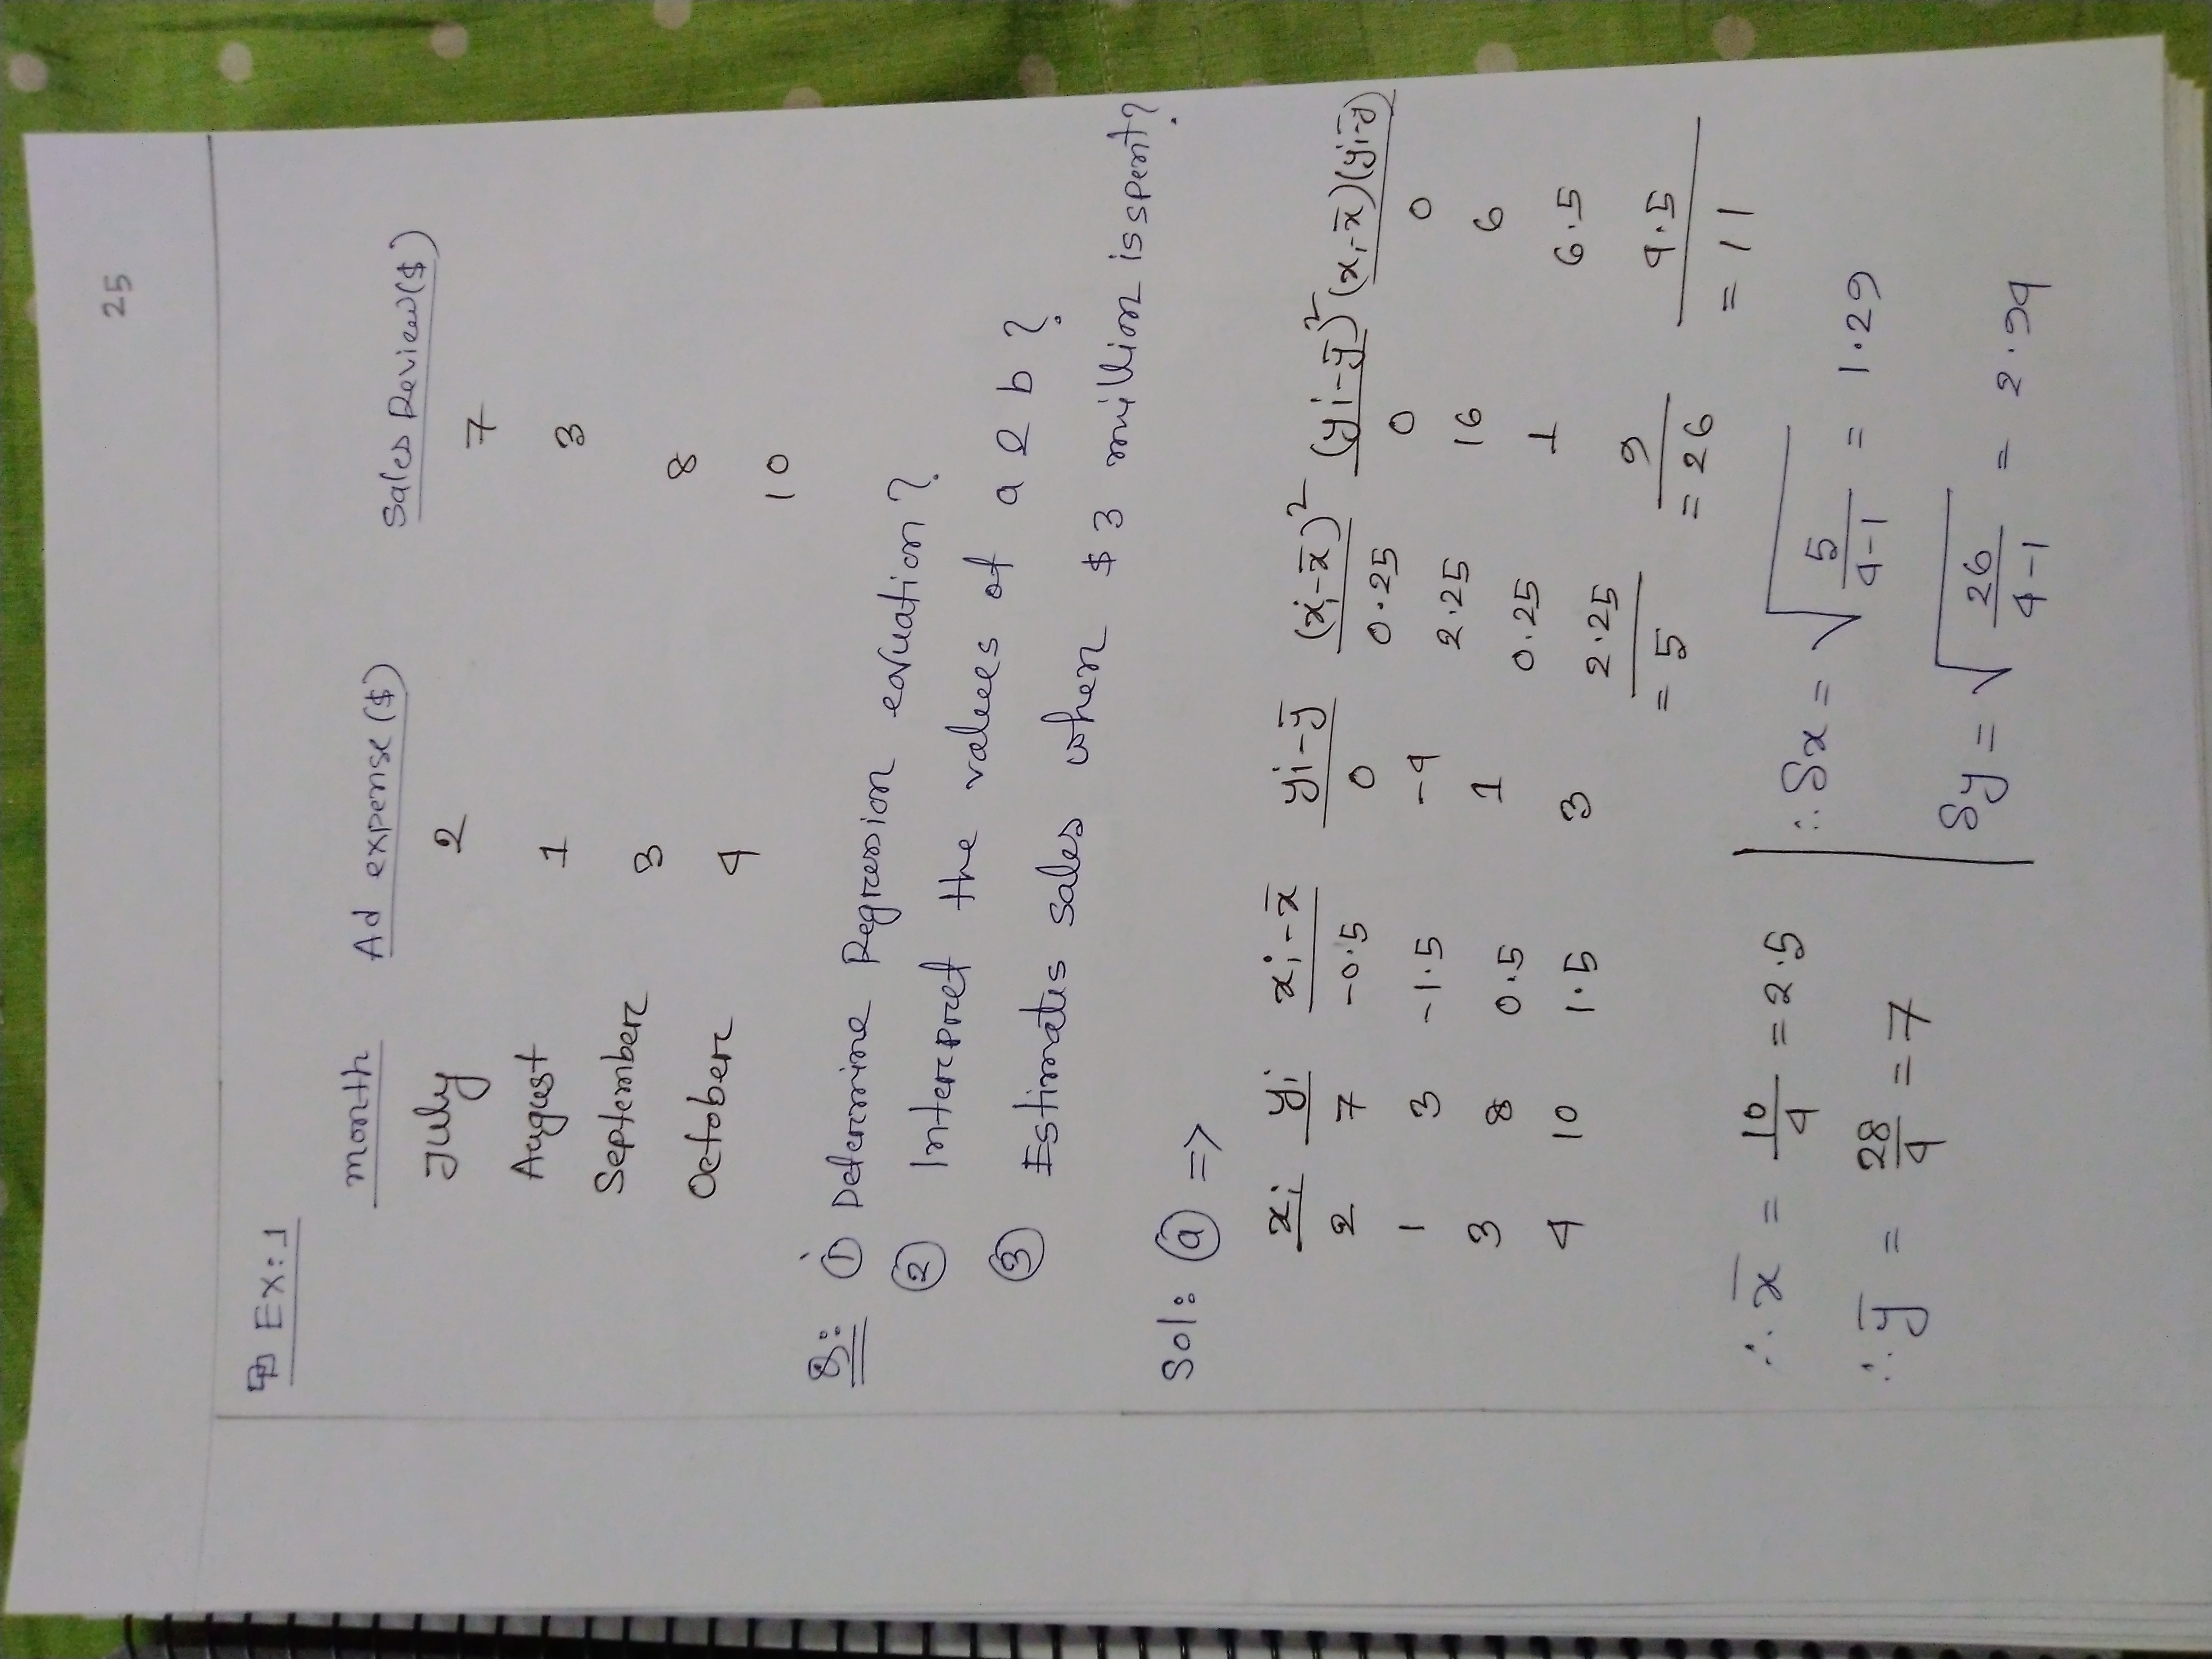 25
Ex:1
month Ad expense($) Sales Review($)
July 2 7
August 1 3
September 3 8
October 4 10
Q: ① Determine Regression equation?
② Interpret the values of a & b?
③ Estimates sales when $3 million is spent?
Sol: ⓐ =>
xi yi xi-x̄ yi-ȳ (xi-x̄)² (yi-ȳ)² (xi-x̄)(yi-ȳ)
2 7 -0.5 0 0.25 0 0
1 3 -1.5 -4 2.25 16 6
3 8 0.5 1 0.25 1 6.5
4 10 1.5 3 2.25 9 4.5
= 5 = 26 = 11
∴ x̄ = 10/4 = 2.5 ∴ Sx = √(5/4-1) = 1.29
∴ ȳ = 28/4 = 7 Sy = √(26/4-1) = 2.94